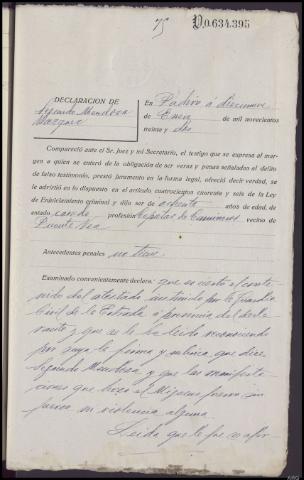 V.0.634.395
DECLARACION DE
Segundo Mendoza
Vazquez
En Padron á diecinueve
de Enero de mil novecientos
treinta y dos
Compareció ante el Sr. Juez y mi Secretario, el testigo que se expresa al mar-
gen a quien se enteró de la obligación de ser veraz y penas señaladas al delito
de falso testimonio, prestó juramento en la forma legal, ofreció decir verdad, se
le advirtió en lo dispuesto en el artículo cuatrocientos cuarenta y seis de la Ley
de Enjuiciamiento criminal y dijo ser de años de edad, de
estado casado profesión Capataz de Caminos vecino de
Puente Vea
Antecedentes penales no tiene
Examinado convenientemente declara: que es cierto el conte-
nido del atestado instruido por la Guardia
Civil de la Estrada á presencia del decla
rante y que se le ha leido reconociendo
por suya la firma y rúbrica que dice
Segundo Mendoza, y que las manifesta-
ciones que hizo el fueron sin
violencia alguna
Leida que le fue se afir-